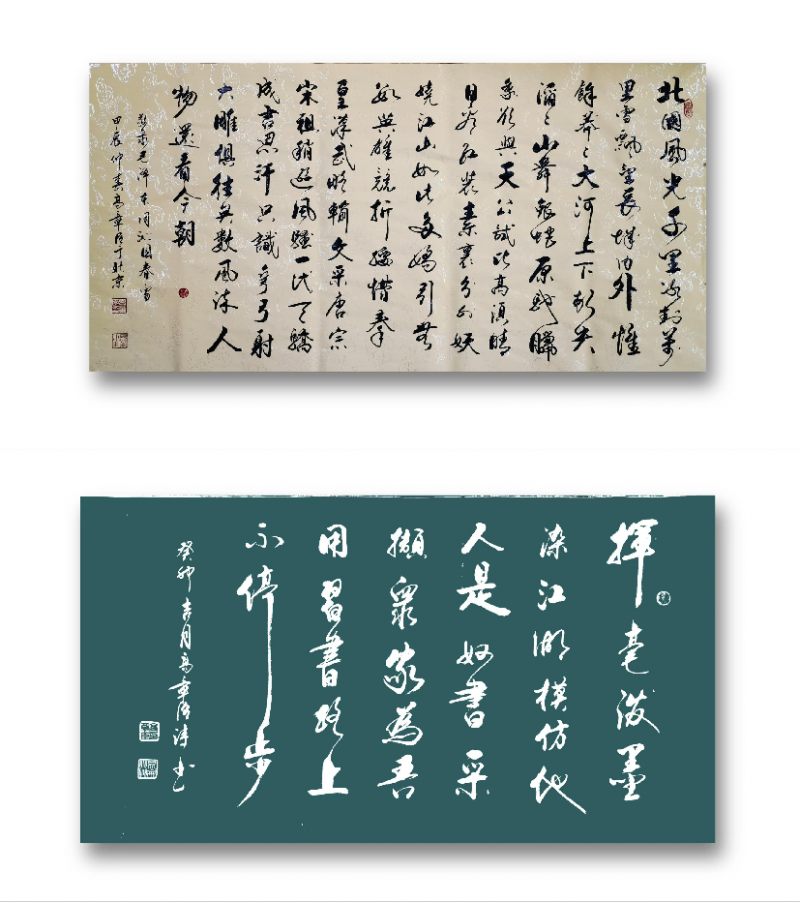 北國風光千里冰封萬
里雪飄望長城内外惟
餘莽々大河上下頓失
滔々山舞銀蛇原馳臘
象欲與天公試比高須晴
日看紅裝素裹分外妖
嬈江山如此多嬌引無
數英雄競折腰惜秦
皇漢武略輸文采唐宗
宋祖稍遜風騷一代天驕
成吉思汗只識彎弓射
大雕俱往矣數風流人
物還看今朝
毛澤東詞沁園春雪
甲辰仲春高章于北京
揮毫潑墨
染江湖模仿他
人是奴書采
擷眾家為吾
用習書路上
不停步
癸卯吉月高章濤書